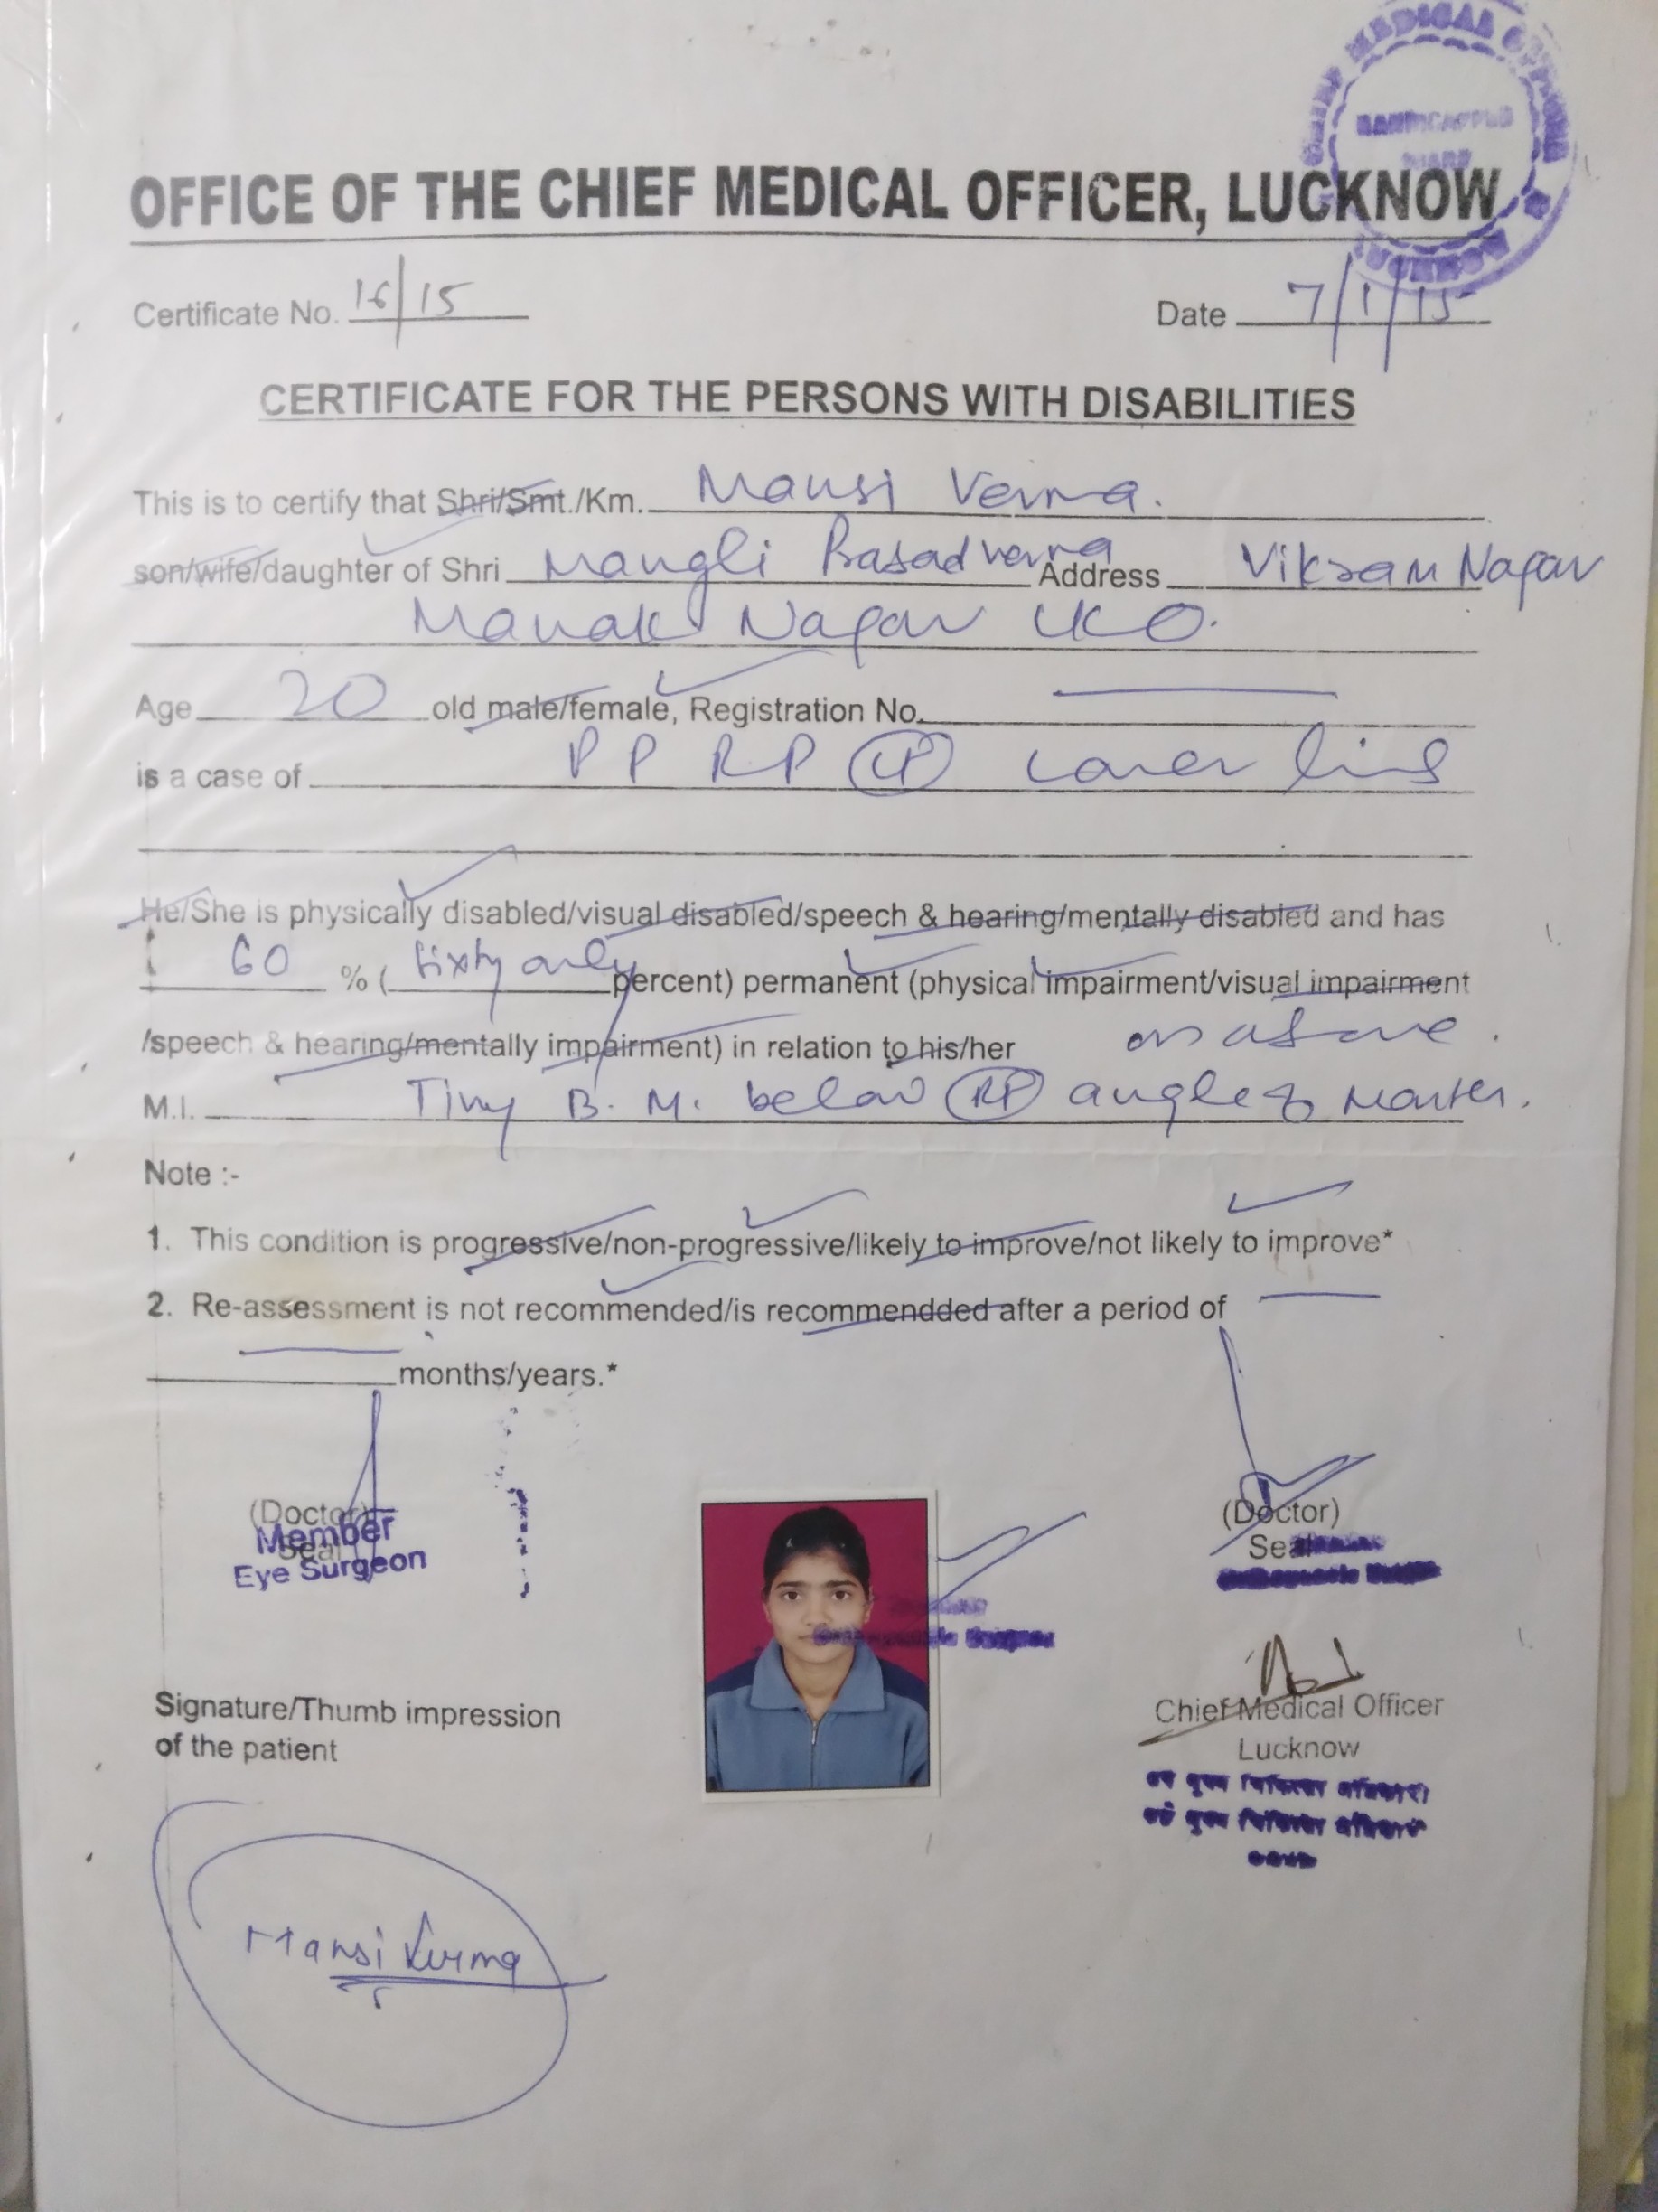 CHIEF MEDICAL OFFICER
HANDICAPPED
BOARD
LUCKNOW
OFFICE OF THE CHIEF MEDICAL OFFICER, LUCKNOW
Certificate No. 16/15 Date 7/1/15
CERTIFICATE FOR THE PERSONS WITH DISABILITIES
This is to certify that Shri/Smt./Km. Mansi Verma.
son/wife/daughter of Shri Mangli Prasad verma Address Vikram Nagar
Manak Nagar LKO.
Age 20 old male/female, Registration No.
is a case of PP RP Lower limb
He/She is physically disabled/visual disabled/speech & hearing/mentally disabled and has
60 % (Sixty only percent) permanent (physical impairment/visual impairment
/speech & hearing/mentally impairment) in relation to his/her as above.
M.I. Tiny B. M. below Rt angle of
Note :-
1. This condition is progressive/non-progressive/likely to improve/not likely to improve*
2. Re-assessment is not recommended/is recommendded after a period of
months/years.*
(Doctor) (Doctor)
Seal Seal
Member
Eye Surgeon
Signature/Thumb impression
of the patient
Chief Medical Officer
Lucknow
Mansi Verma